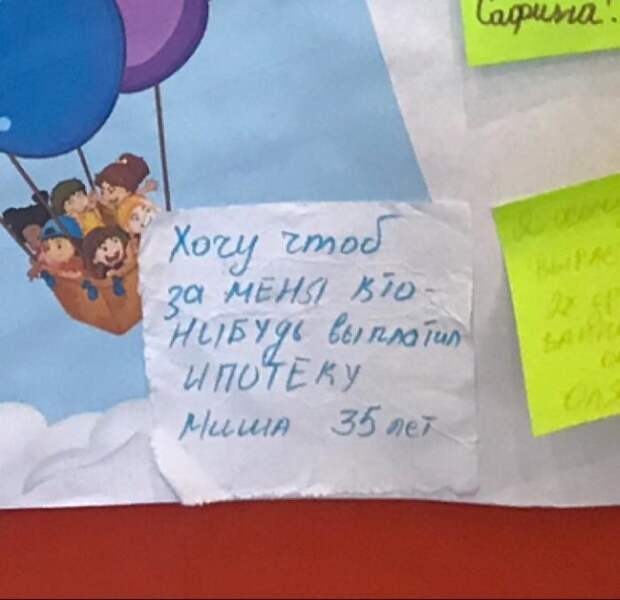 Сафина!
Хочу чтоб
за меня кто-
нибудь выплатил
ипотеку
Миша 35 лет